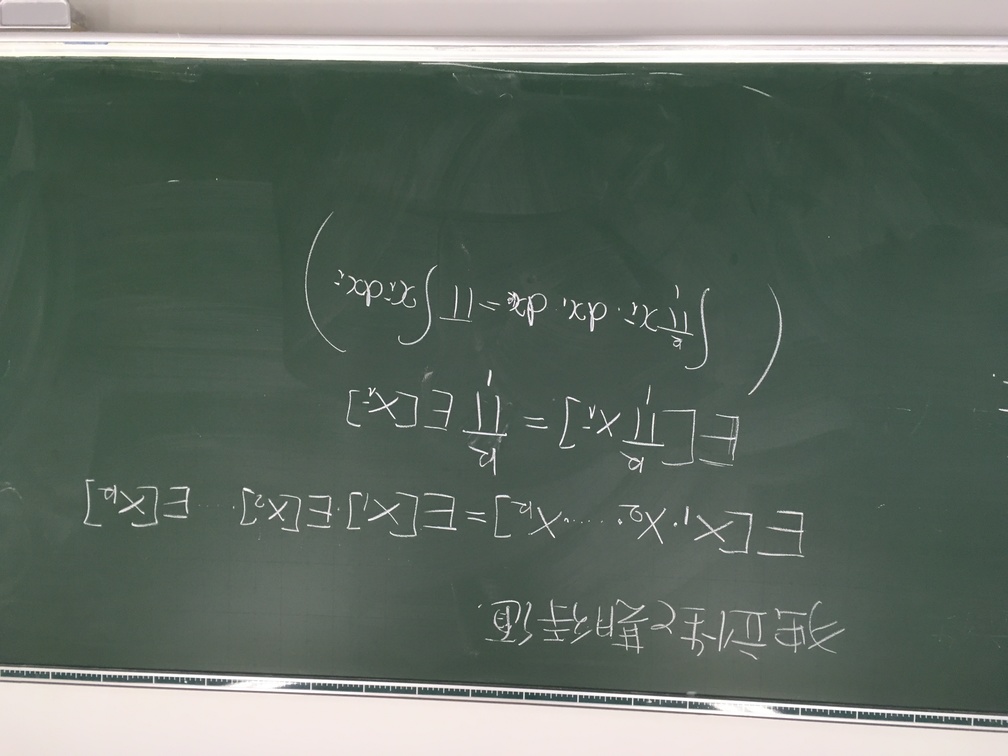 独立性と期待値.
E[X₁·X₂·····X_k]=E[X₁]·E[X₂]····E[X_k]
E[∏₁ᵏXᵢ]=∏₁ᵏE[Xᵢ]
(∫∏₁ᵏxᵢ·dx₁ dx_k=∏∫xᵢdxᵢ)